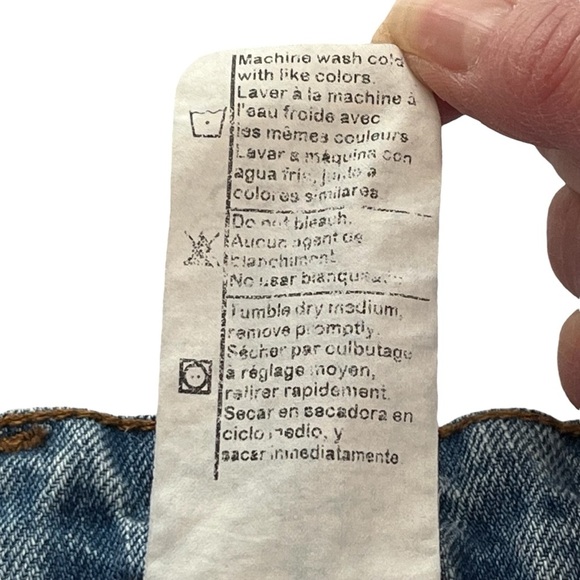 Machine wash cold
with like colors.
Laver à la machine à
l'eau froide avec
les mêmes couleurs
Lavar a máquina con
agua fría, junto a
colores similares
Do not bleach.
Aucun agent de
blanchiment.
No usar blanqueador
Tumble dry medium,
remove promptly.
Sécher par culbutage
à réglage moyen,
retirer rapidement.
Secar en secadora en
ciclo medio, y
sacar inmediatamente